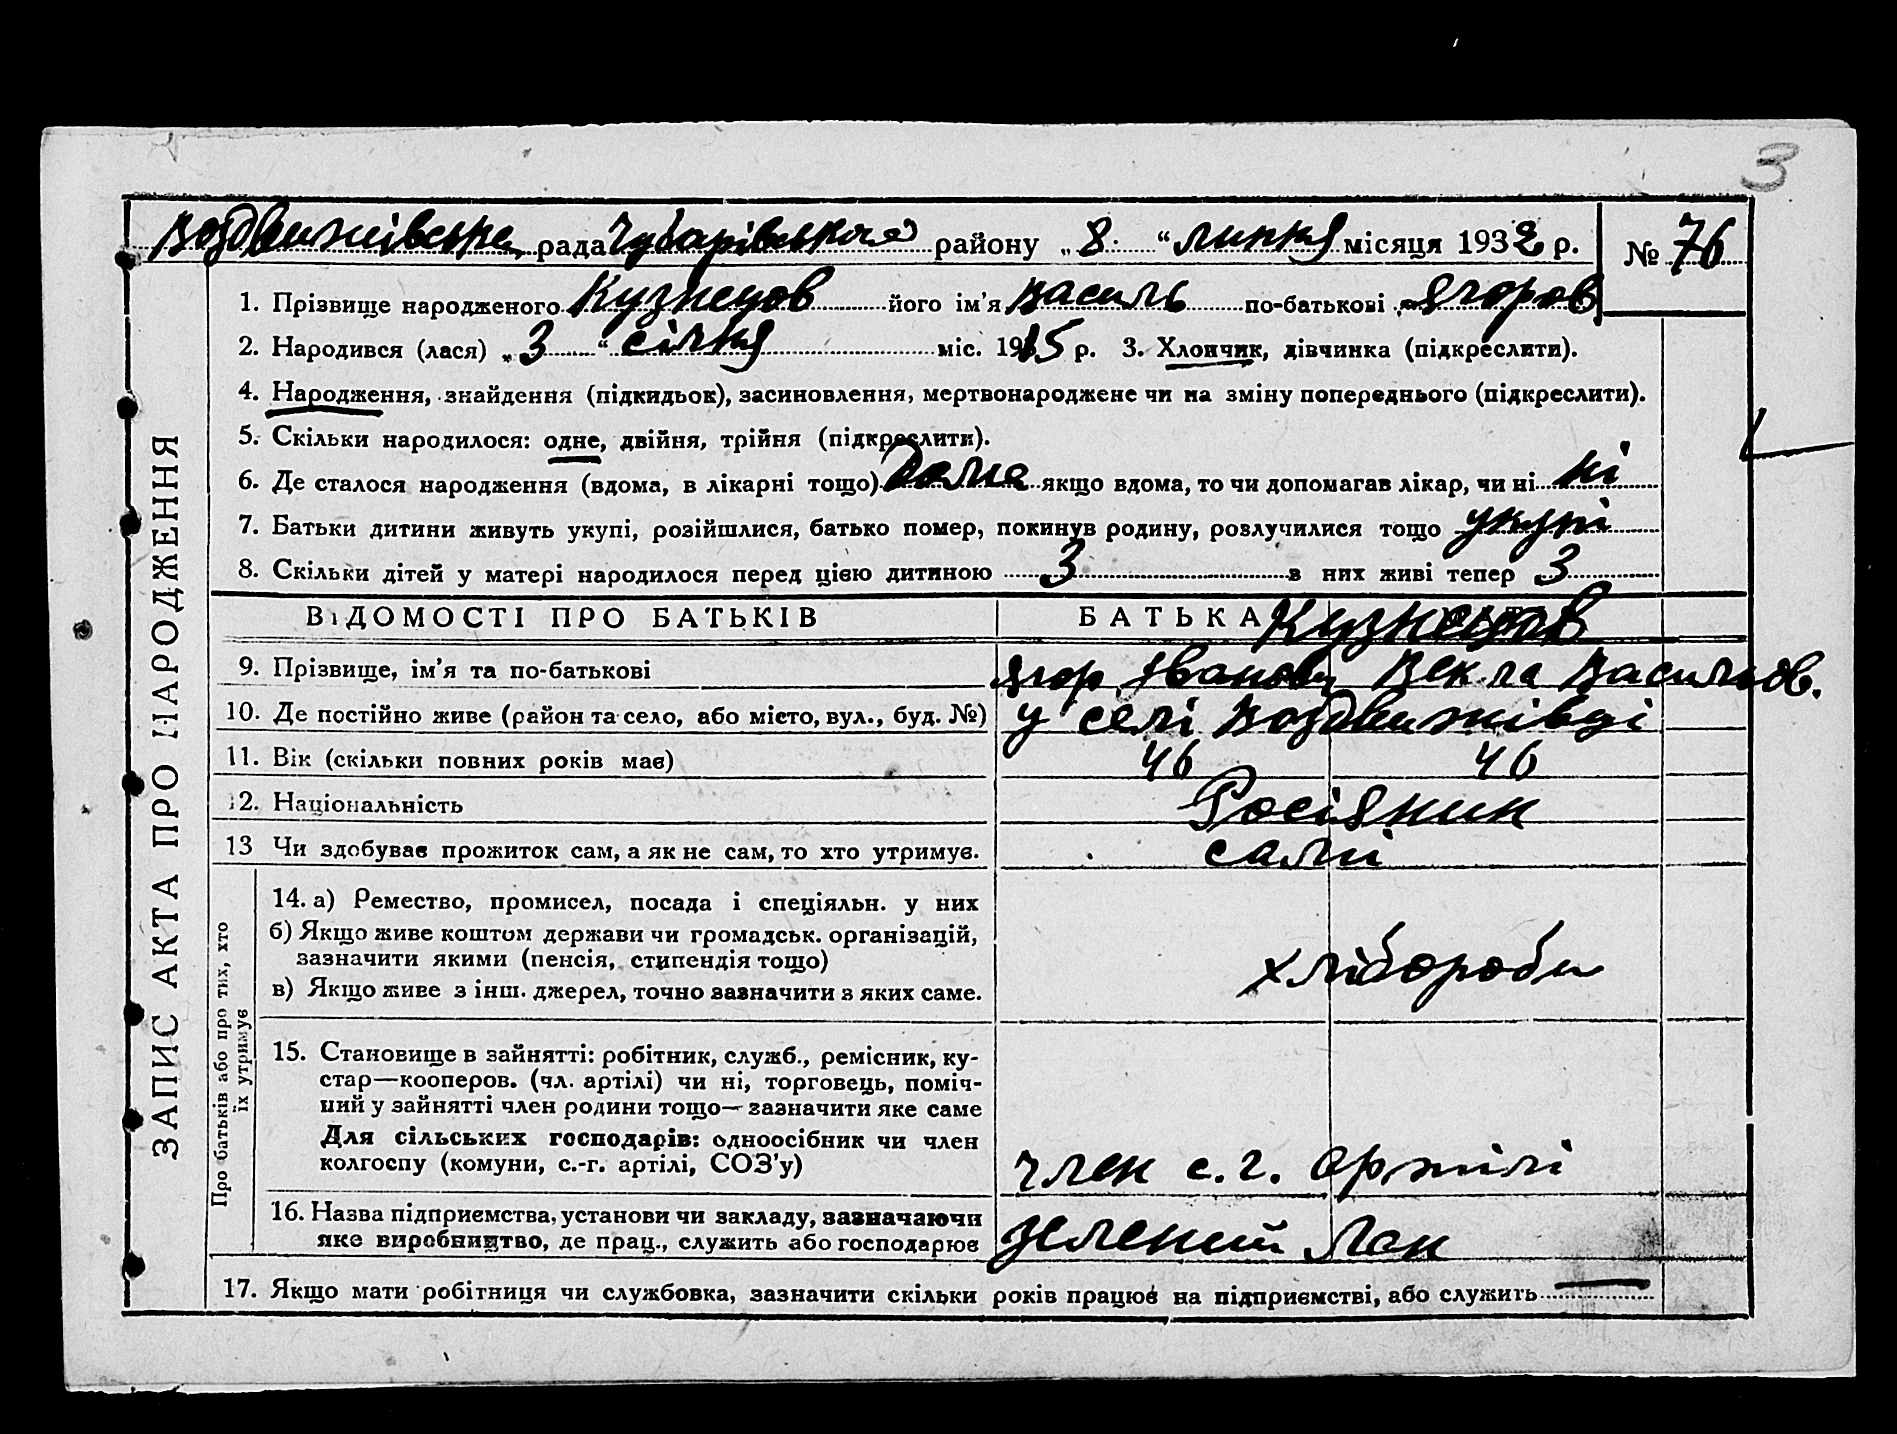 3
Воздвижівська рада Чубарівського району „8“ липня місяця 1932 р. № 76
1. Прізвище народженого Кузнецов його ім’я Василь по-батькові Ягоров
2. Народився (лася) „3“ січня міс. 1915 р. 3. Хлопчик, дівчинка (підкреслити).
4. Народження, знайдення (підкидьок), засиновлення, мертвонароджене чи на зміну попереднього (підкреслити).
5. Скільки народилося: одне, двійня, трійня (підкреслити).
6. Де сталося народження (вдома, в лікарні тощо) Дома якщо вдома, то чи допомагав лікар, чи ні ні
7. Батьки дитини живуть укупі, розійшлися, батько помер, покинув родину, розлучилися тощо укупі
8. Скільки дітей у матері народилося перед цією дитиною 3 в них живі тепер 3
ВІДОМОСТІ ПРО БАТЬКІВ БАТЬКА Кузнецов
9. Прізвище, ім’я та по-батькові Ягор Іванович Векла Васильов.
10. Де постійно живе (район та село, або місто, вул., буд. №) у селі Воздвижівці
11. Вік (скільки повних років має) 46 46
12. Національність Росіянин
13 Чи здобуває прожиток сам, а як не сам, то хто утримує. самі
14. а) Ремество, промисел, посада і спеціяльн. у них
б) Якщо живе коштом держави чи громадськ. організацій,
зазначити якими (пенсія, стипендія тощо) хлібороби
в) Якщо живе з інш. джерел, точно зазначити з яких саме.
15. Становище в зайнятті: робітник, служб., ремісник, ку-
стар—кооперов. (чл. артілі) чи ні, торговець, поміч-
ний у зайнятті член родини тощо—зазначити яке саме
Для сільських господарів: одноосібник чи член
колгоспу (комуни, с.-г. артілі, СОЗ’у) член с. г. артілі
16. Назва підприємства, установи чи закладу, зазначаючи
яке виробництво, де прац., служить або господарює зелений Лан
17. Якщо мати робітниця чи службовка, зазначити скільки років працює на підприємстві, або служить —
ЗАПИС АКТА ПРО НАРОДЖЕННЯ
Про батьків або про тих, хто
їх утримує